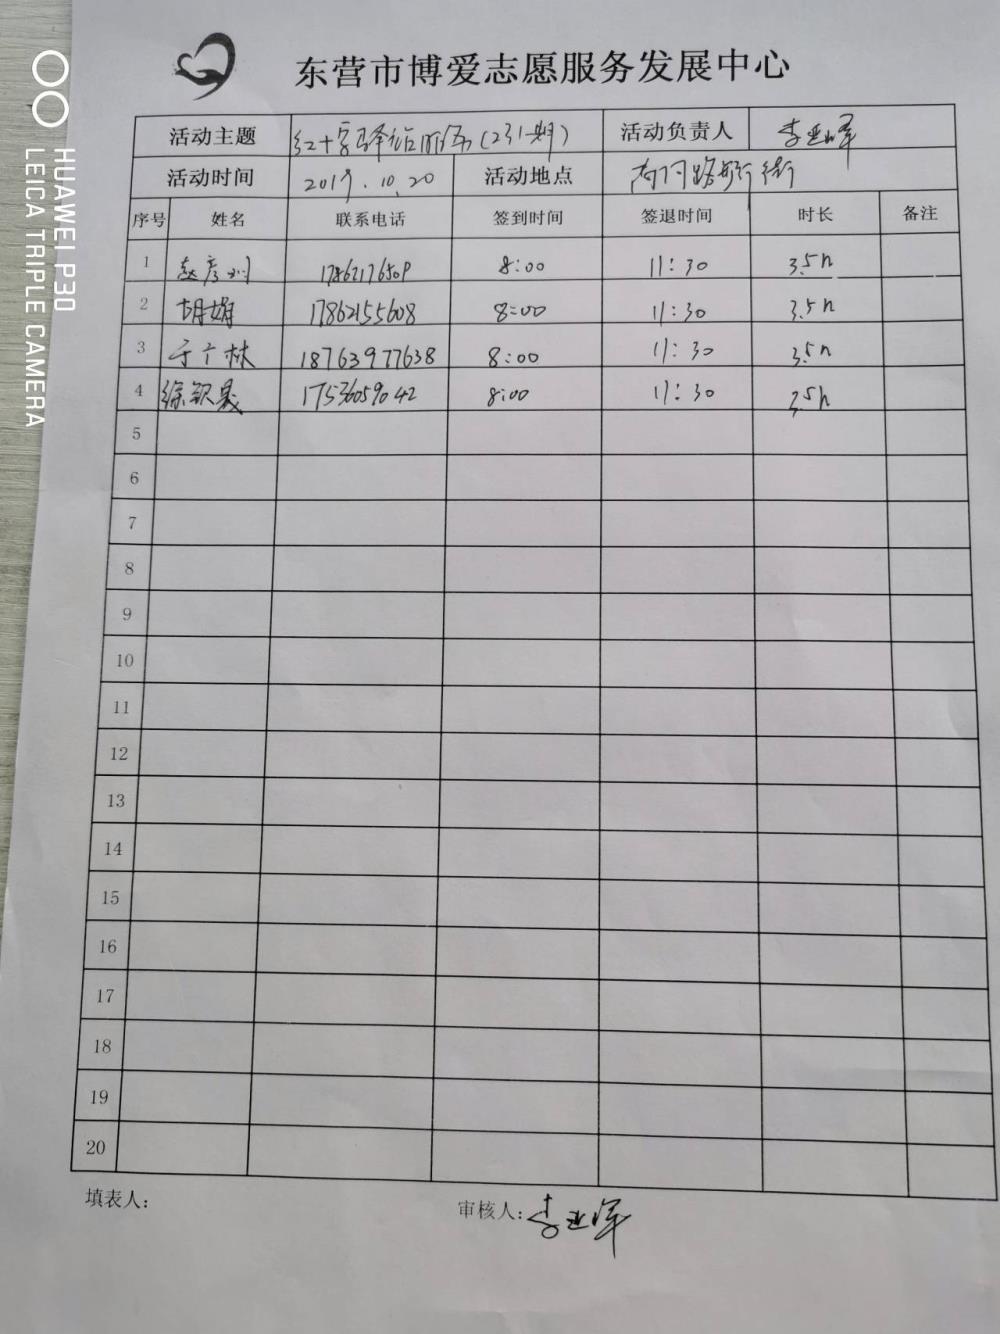 东营市博爱志愿服务发展中心
活动主题 红十字驿站服务(231期) 活动负责人 李亚军
活动时间 2019.10.20 活动地点 步行街
序号 姓名 联系电话 签到时间 签退时间 时长 备注
1 8:00 11:30 3.5h
2 胡娟 17862155608 8:00 11:30 3.5h
3 于广林 18763977638 8:00 11:30 3.5h
4 17536059042 8:00 11:30 3.5h
5
6
7
8
9
10
11
12
13
14
15
16
17
18
19
20
填表人: 审核人: 李亚军
HUAWEI P30
LEICA TRIPLE CAMERA